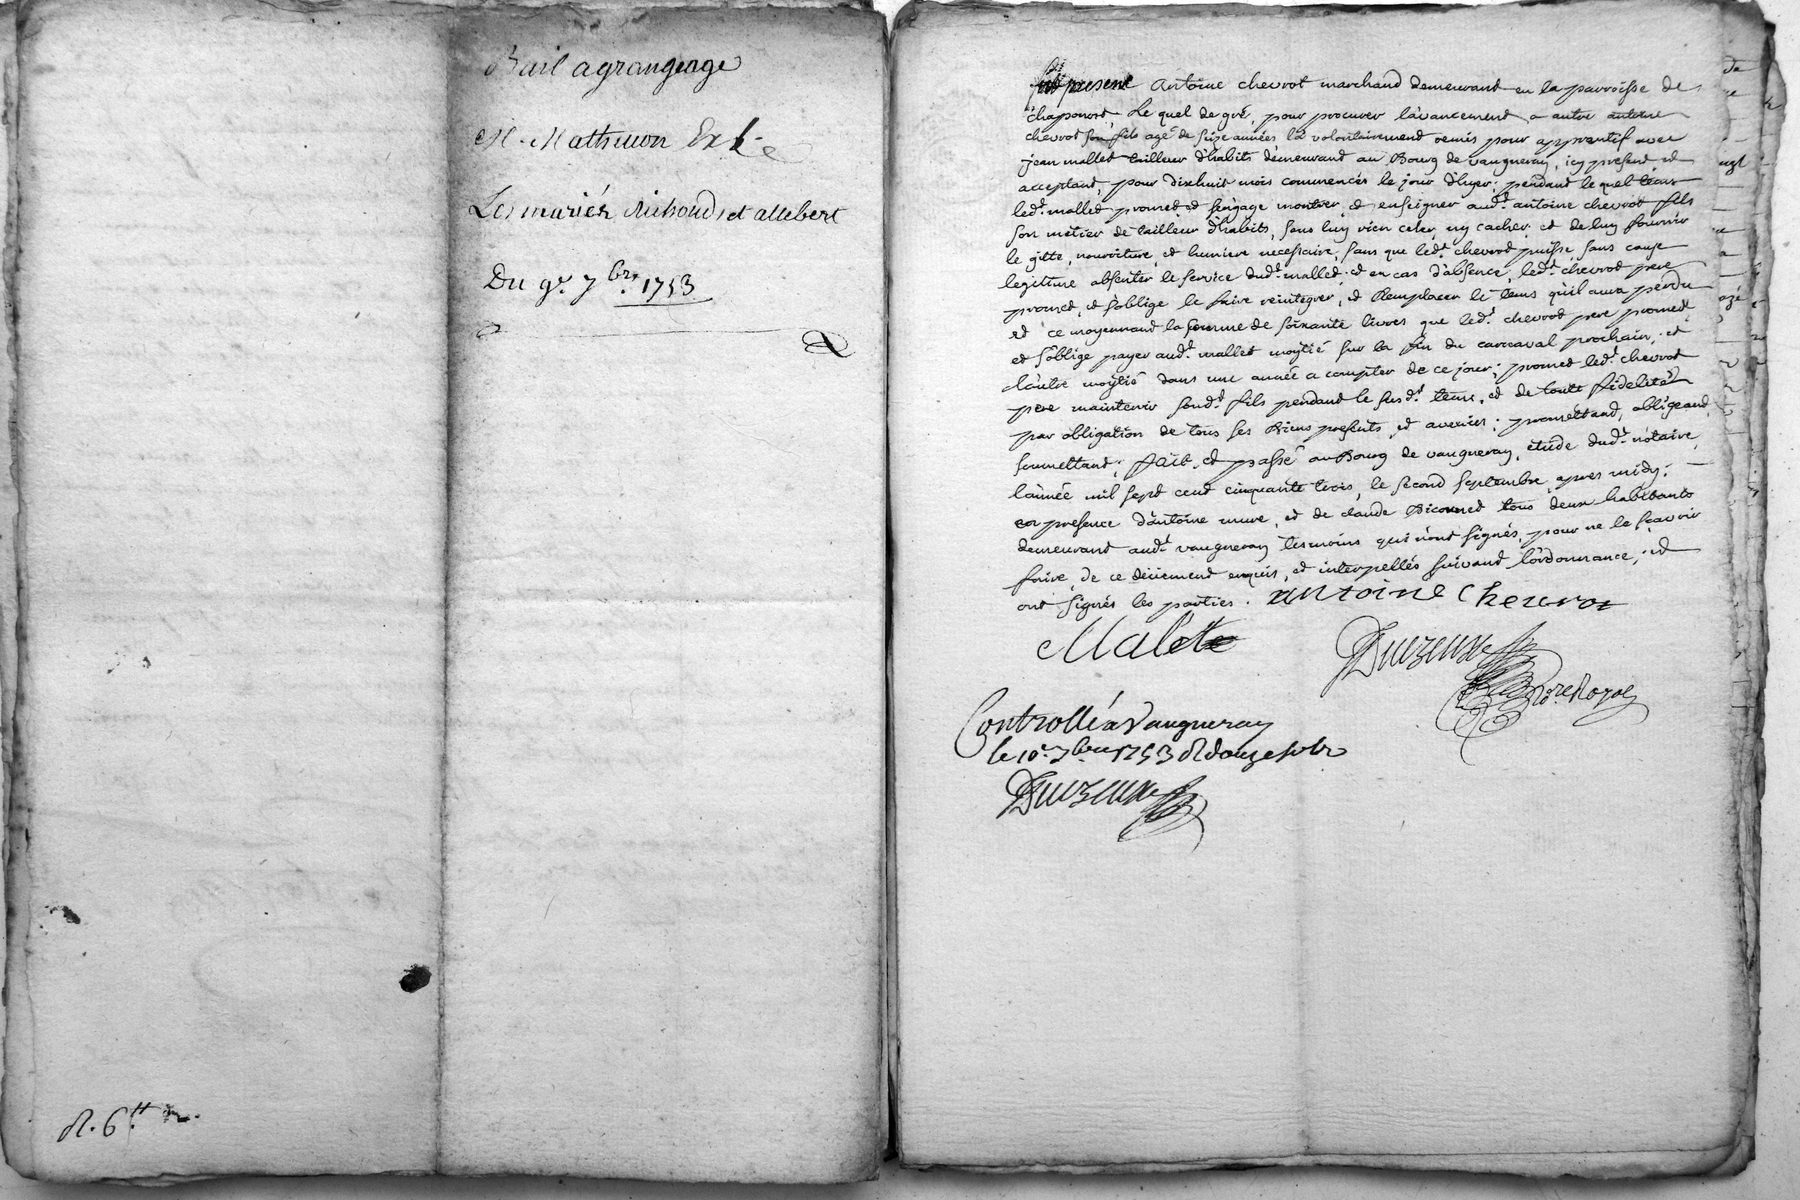 Bail a grangeage
M. Mathevon
Les mariés Richoud et allebert
Du 9e. 7bre. 1753
R. 6tt
fut present Antoine chevrot marchand demeurant en la parroisse de
chaponost, Le quel de gré, pour procurer l'avancement a autre antoine
chevrot son fils agé de seize années l'a volontairement remis pour apprentif avec
jean mallet tailleur d'habits demeurant au Bourg de vaugneray, icy present et
acceptant, pour dixhuit mois commencés le jour d'hyer; pendant le quel tems
led.t mallet promet et s'engage montrer et enseigner aud.t antoine chevrot fils
son metier de tailleur d'habits, sans luy rien celer, ny cacher, et de luy fournir
le gitte, nourriture, et lumiere necessaire; sans que led.t chevrot puisse, sans cause
legitime absenter le service dud.t mallet; et en cas d'absence, led.t chevrot pere
promet, et s'oblige le faire reintegrer, et Remplacer le tems qu'il aura perdu
et ce moyennant la somme de soixante livres que led.t chevrot pere promet
et s'oblige payer aud.t mallet moytié sur la fin du carnaval prochain, et
l'autre moytié dans une année a compter de ce jour; promet led.t chevrot
pere maintenir sond.t fils pendant le susd.t tems, et de toute fidelité
par obligation de tous ses Biens presents, et avenirs; promettant, obligeant,
soumettant; fait, et passé au Bourg de vaugneray, etude dud.t notaire,
l'année mil sept cent cinquante trois, le second septembre apres midy;
en presence d'antoine mure, et de claude Bicornet tous deux habitants
demeurant aud.t vaugneray temoins qui n'ont signés, pour ne le sçavoir
faire, de ce düement enquis, et interpellés suivant l'ordonnance, et
ont signés les parties. antoine Chevrot
Malet
no.re Royal
Controllé a Vaugneray
le 10e. 7bre 1753 R douze sols